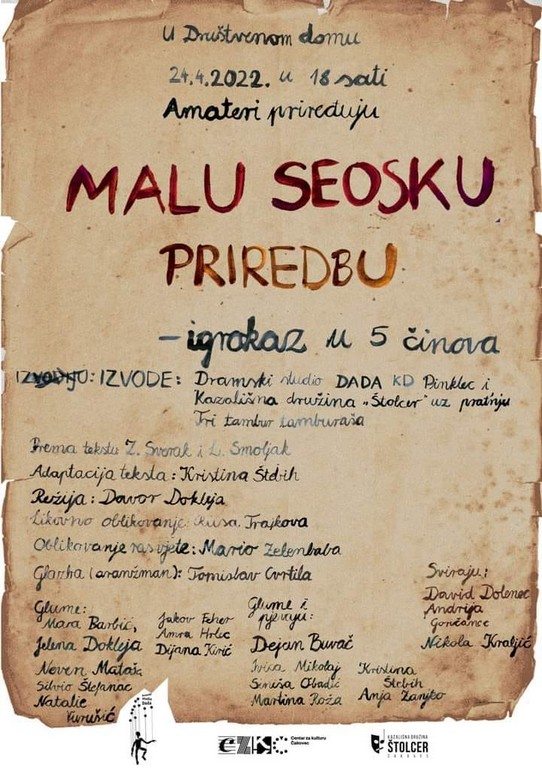 U Društvenom domu
24.4.2022. u 18 sati
Amateri priređuju
MALU SEOSKU
PRIREDBU
– igrokaz u 5 činova
IZVODE: Dramski studio DADA KD Pinklec i
Kazališna družina „Štolcer“ uz pratnju
Tri tambur tamburaša
Prema tekstu Z. Sverak i L. Smoljak
Adaptacija teksta: Kristina Štebih
Režija: Davor Dokleja
Likovno oblikovanje: Rusa Trajkova
Oblikovanje rasvjete: Mario Zelenbaba
Glazba (aranžman): Tomislav Cvrtila
Glume:
Mara Barbić,
Jelena Dokleja
Neven Mataša
Silvio Stefanac
Natalie
Vurušić
Jakov Feher
Amra Hrlec
Dijana Kirić
Glume i
pjevaju:
Dejan Buvač
Ivica Mikolaj
Siniša Obadić
Martina Roža
Kristina
Štebih
Anja Zanjko
Sviraju:
David Dolenec
Andrija
Goričanec
Nikola Kraljić
CZKČ
Centar za kulturu
Čakovec
KAZALIŠNA DRUŽINA
ŠTOLCER
ČAKOVEC